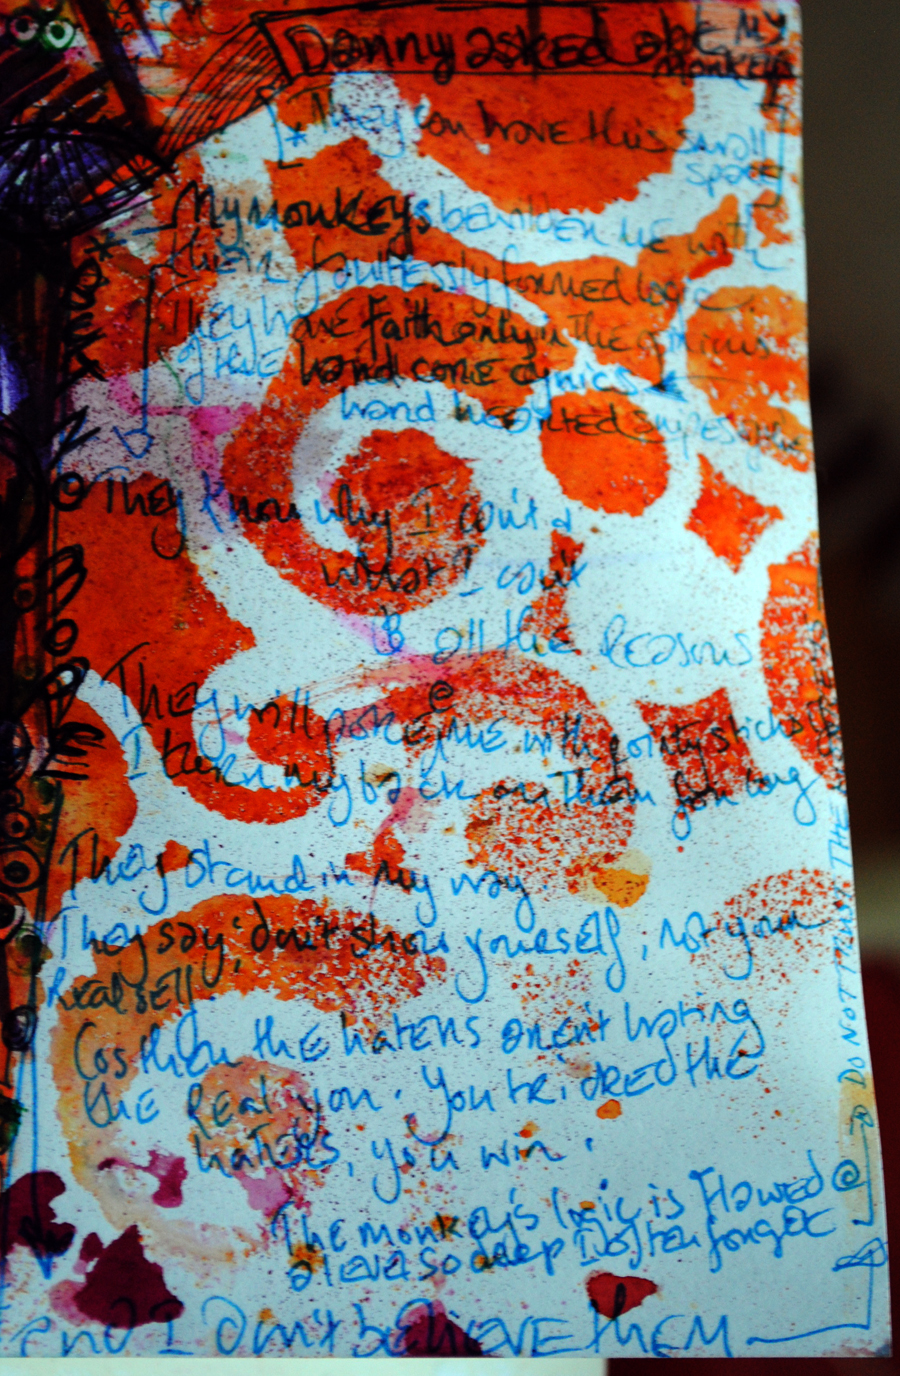 Danny asked abt MY
monkeys
* They can have this small
space
My monkeys bewilder me with
their faultlessly formed logic.
They have Faith only in the
of the hard core cynics &
hard hearted of the
They know why I can't &
what I can't
& all the Reasons
They will poke me with pointy sticks if
I turn my back on them for long
They stand in my way
They say: don't show yourself, not your
Real self.
Cos then the haters aren't hating
the Real you. You tricked the
haters, you win.
The monkey's logic is Flawed @
a level so deep I often forget
and I don't believe them
DO NOT THE